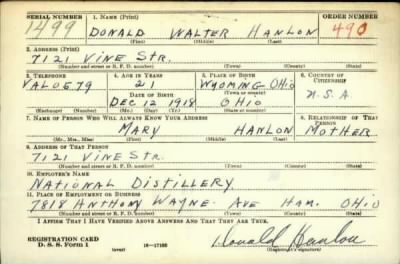 SERIAL NUMBER 1. NAME (Print) ORDER NUMBER
1499 DONALD WALTER HANLON 490
(First) (Middle) (Last)
2. ADDRESS (Print)
7121 VINE STR.
(Number and street or R. F. D. number) (Town) (County) (State)
3. TELEPHONE 4. AGE IN YEARS 5. PLACE OF BIRTH 6. COUNTRY OF CITIZENSHIP
VALO 679 21 WYOMING OHIO
DATE OF BIRTH (Town) (County)
DEC 12 1918 OHIO U.S.A
(Exchange) (Number) (Mo.) (Day) (Yr.) (State or country)
7. NAME OF PERSON WHO WILL ALWAYS KNOW YOUR ADDRESS 8. RELATIONSHIP OF THAT PERSON
MARY HANLON MOTHER
(Mr., Mrs., Miss) (First) (Middle) (Last)
9. ADDRESS OF THAT PERSON
7121 VINE STR.
(Number and street or R. F. D. number) (Town) (County) (State)
10. EMPLOYER'S NAME
NATIONAL DISTILLERY
11. PLACE OF EMPLOYMENT OR BUSINESS
7818 ANTHONY WAYNE. AVE HAM. OHIO
(Number and street or R. F. D. number) (Town) (County) (State)
I AFFIRM THAT I HAVE VERIFIED ABOVE ANSWERS AND THAT THEY ARE TRUE.
REGISTRATION CARD
D. S. S. Form 1 (over) 16—17105 Donald Hanlon
(Registrant's signature)